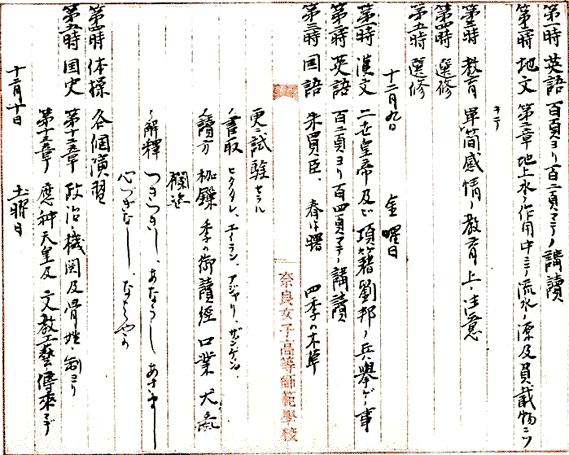 第一時 英語 百頁ヨリ百二頁マデノ講讀
第二時 地文 第二章地上水ノ作用中ニテ流水ノ源及負載物ニツ
キテ
第三時 教育 單簡感情ノ教育上ノ注意
第四時 選修
第五時 選修
十二月九日 金曜日
第一時 漢文 二世皇帝及ビ項籍劉邦ノ兵舉グル事
第二時 英語 百二頁ヨリ百四頁マデノ講讀
第三時 国語 朱買臣、春は曙 四季の木草
更ニ試驗セラル
奈良女子高等師範學校
書取 ヒタタレ、エイラン、アジャリ、ザンゲン、
讀方 季の御讀經 口業
解釋 つきつきし、あなうし
心つきなし、なよらか
第四時 体操 各個演習
第五時 国史 第十二章 政治ノ機関及骨姓ノ制ヨリ
第十五章 應神天皇及文教工藝ノ傳來マデ
十二月十日 土曜日